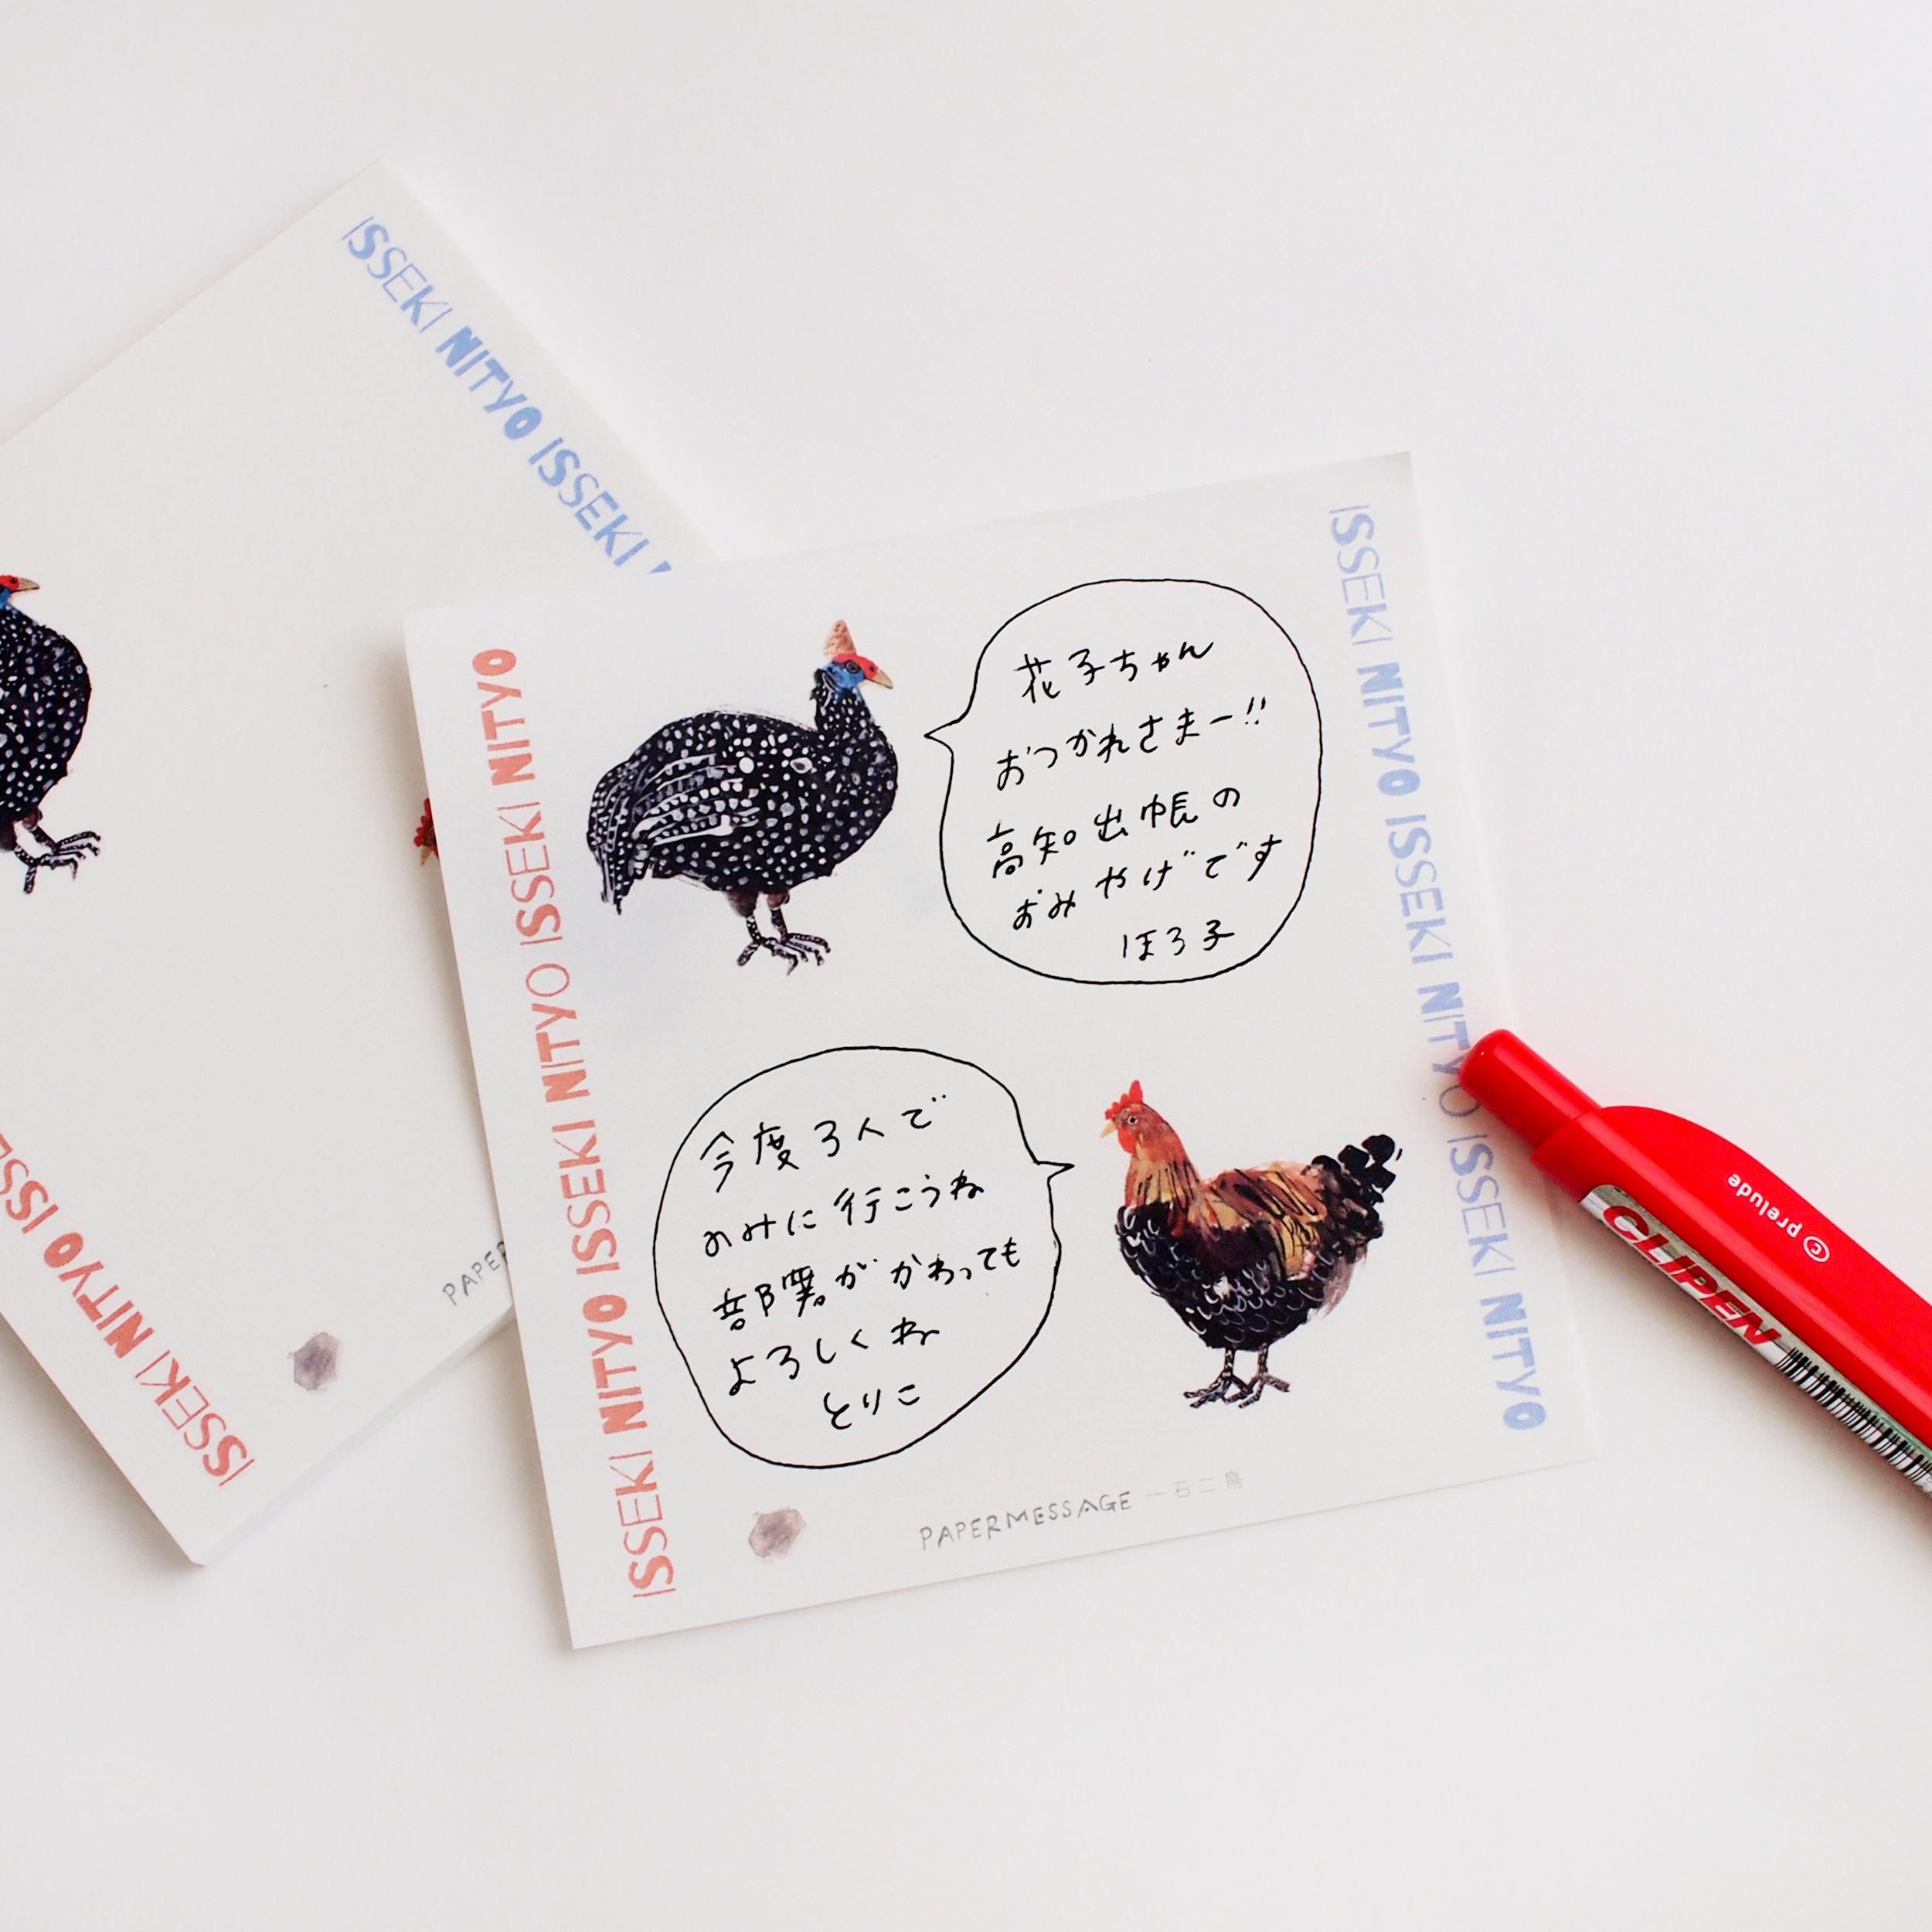 ISSEKI NITYO ISSEKI
ISSEKI NITYO ISSE
PAPER
ISSEKI NITYO ISSEKI NITYO ISSEKI NITYO ISSEKI NITYO
花子ちゃん
おつかれさまー!!
高知出帳の
おみやげです
ほろ子
今度3人で
のみに行こうね
部署がかわっても
よろしくね
とりこ
ISSEKI NITYO ISSEKI NITYO ISSEKI NITYO
PAPERMESSAGE 一石二鳥
prelude
CLIPEN